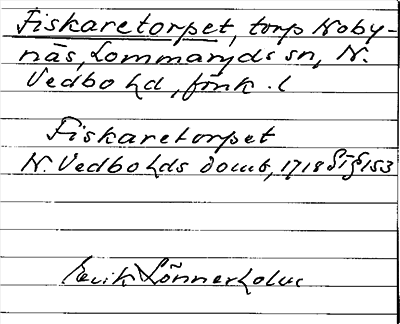 Fiskaretorpet, torp Noby-
näs, Lommaryds sn, N.
Vedbo hd, jönk. l
Fiskaretorpet
N. Vedbo hds domb, 1718 § 153
Erik Lönnerholm